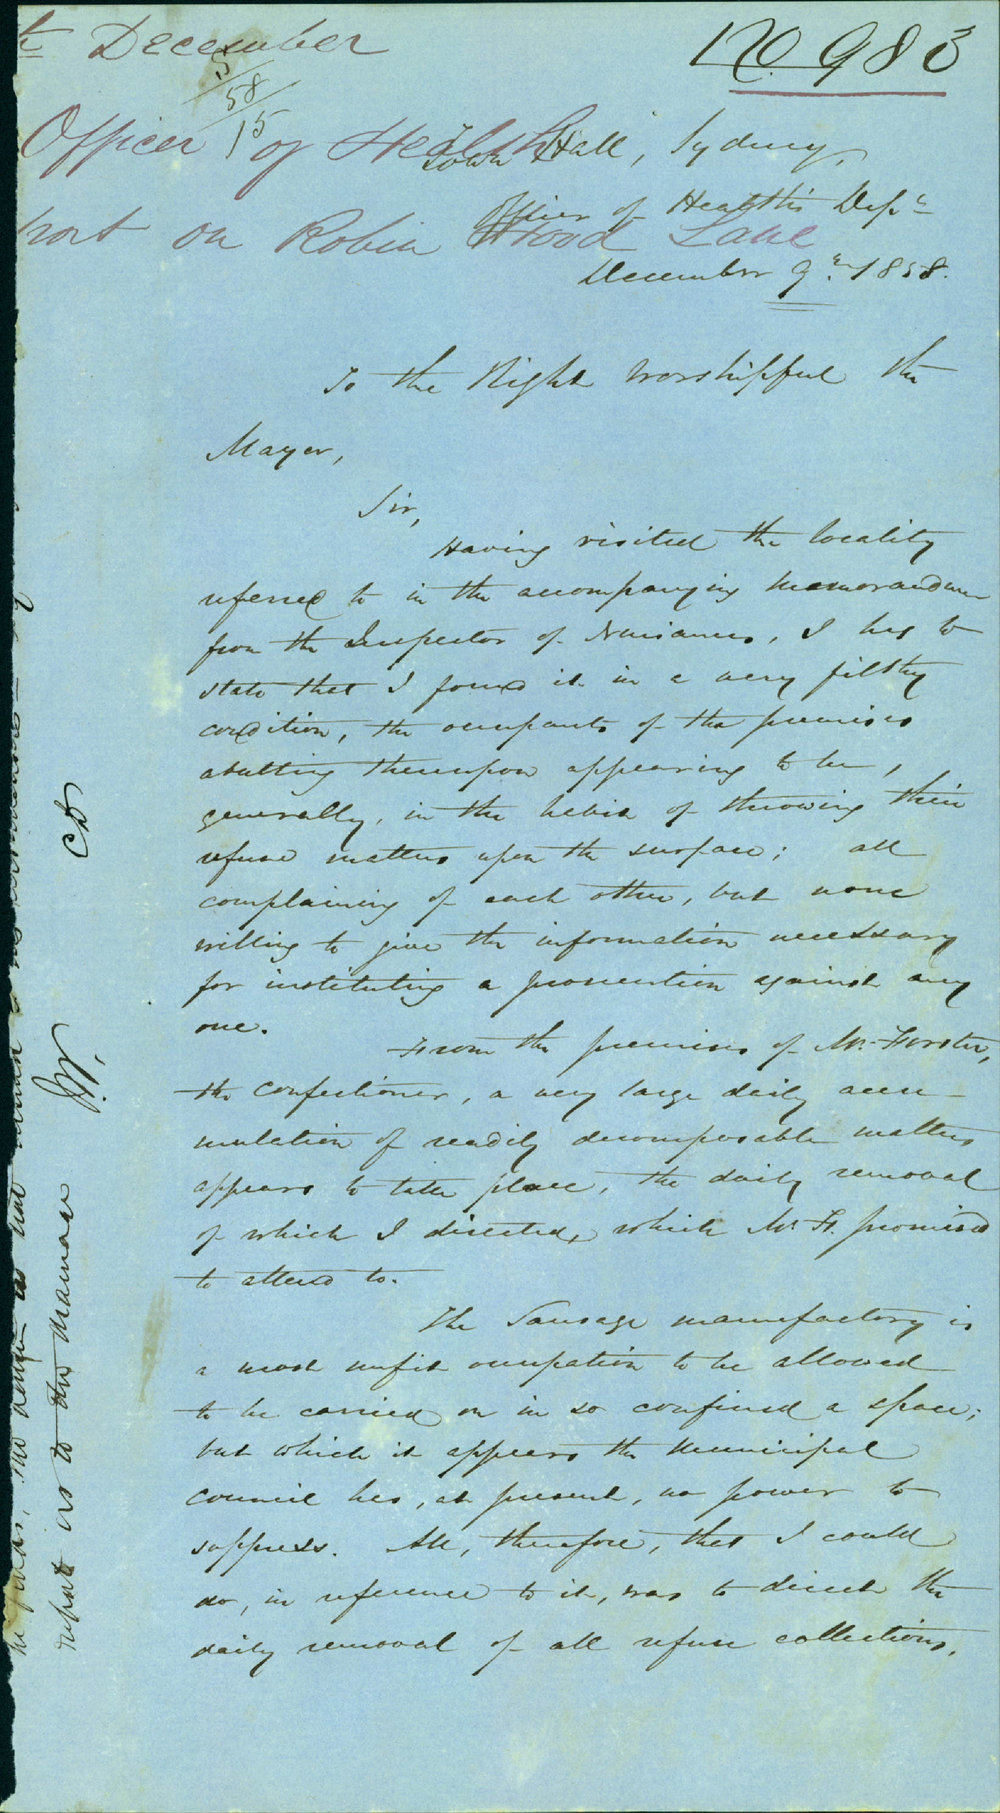 th December
No 983
5
58
15
Officer of Health
Town Hall, Sydney,
Officer of Health's Depn
port on Robin Hood Lane
December 9th 1858.
To the Right Worshipful the
Mayor,
Sir,
Having visited the locality
referred to in the accompanying memorandum
from the Inspector of Nuisances, I beg to
state that I found it in a very filthy
condition, the occupants of the premises
abutting thereupon appearing to be,
generally, in the habit of throwing their
refuse matters upon the surface; all
complaining of each other, but none
willing to give the information necessary
for instituting a prosecution against any
one.
From the premises of Mr. Forster,
the confectioner, a very large daily accu-
mulation of readily decomposable matters
appears to take place, the daily removal
of which I directed, which Mr. F. promised
to attend to.
The Sausage manufactory is
a most unfit occupation to be allowed
to be carried on in so confined a space;
but which it appears the Municipal
Council has, at present, no power to
suppress. All, therefore, that I could
do, in reference to it, was to direct the
daily removal of all refuse collections.
report as to the
CD